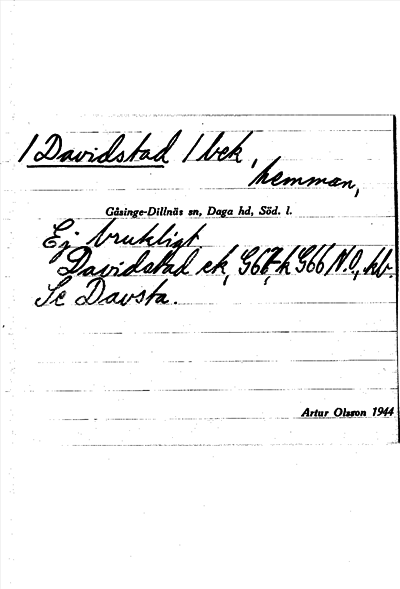 / Davidstad / bek,
hemman,
Gåsinge-Dillnäs sn, Daga hd, Söd. l.
Ej brukligt
Davidstad ek, G67-h G66 N.O., kb.
Se Davsta.
Artur Olsson 1944